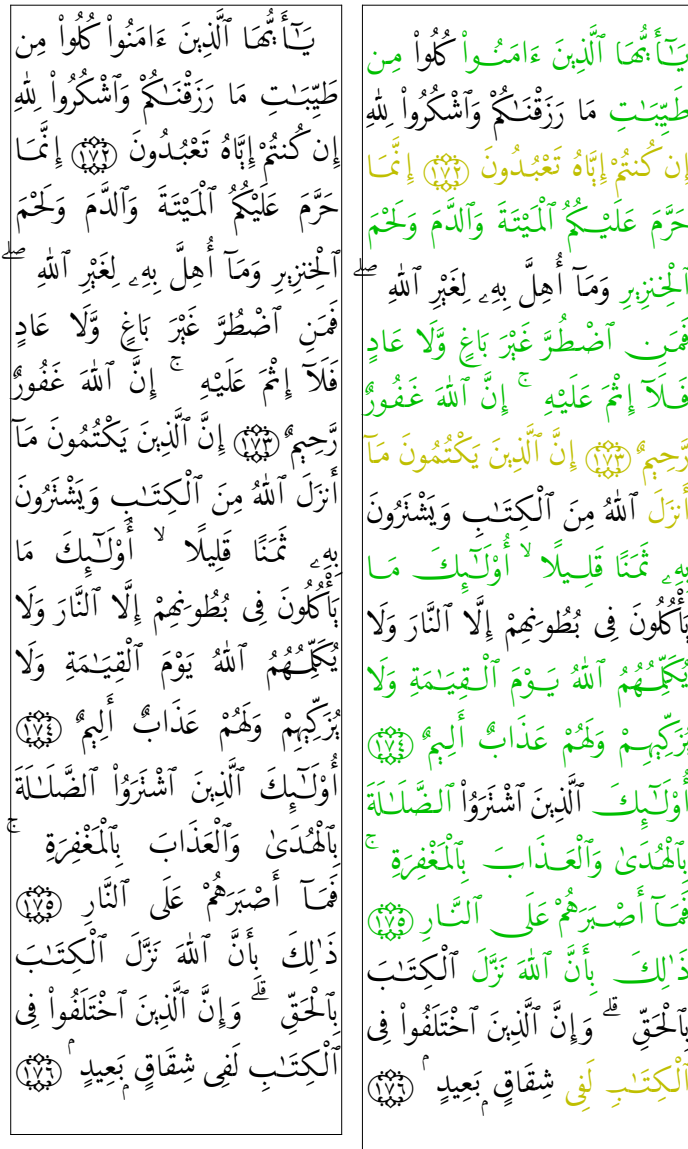 يَـٰٓأَيُّهَا ٱلَّذِينَ ءَامَنُوا۟ كُلُوا۟ مِن
طَيِّبَـٰتِ مَا رَزَقْنَـٰكُمْ وَٱشْكُرُوا۟ لِلَّهِ
إِن كُنتُمْ إِيَّاهُ تَعْبُدُونَ ۝١٧٢ إِنَّمَا
حَرَّمَ عَلَيْكُمُ ٱلْمَيْتَةَ وَٱلدَّمَ وَلَحْمَ
ٱلْخِنزِيرِ وَمَآ أُهِلَّ بِهِۦ لِغَيْرِ ٱللَّهِ ۖ
فَمَنِ ٱضْطُرَّ غَيْرَ بَاغٍ وَّلَا عَادٍ
فَلَآ إِثْمَ عَلَيْهِ ۚ إِنَّ ٱللَّهَ غَفُورٌ
رَّحِيمٌ ۝١٧٣ إِنَّ ٱلَّذِينَ يَكْتُمُونَ مَآ
أَنزَلَ ٱللَّهُ مِنَ ٱلْكِتَـٰبِ وَيَشْتَرُونَ
بِهِۦ ثَمَنًا قَلِيلًا ۙ أُو۟لَـٰٓئِكَ مَا
يَأْكُلُونَ فِى بُطُونِهِمْ إِلَّا ٱلنَّارَ وَلَا
يُكَلِّمُهُمُ ٱللَّهُ يَوْمَ ٱلْقِيَـٰمَةِ وَلَا
يُزَكِّيهِمْ وَلَهُمْ عَذَابٌ أَلِيمٌ ۝١٧٤
أُو۟لَـٰٓئِكَ ٱلَّذِينَ ٱشْتَرَوُا۟ ٱلضَّلَـٰلَةَ
بِٱلْهُدَىٰ وَٱلْعَذَابَ بِٱلْمَغْفِرَةِ ۚ
فَمَآ أَصْبَرَهُمْ عَلَى ٱلنَّارِ ۝١٧٥
ذَٰلِكَ بِأَنَّ ٱللَّهَ نَزَّلَ ٱلْكِتَـٰبَ
بِٱلْحَقِّ ۗ وَإِنَّ ٱلَّذِينَ ٱخْتَلَفُوا۟ فِى
ٱلْكِتَـٰبِ لَفِى شِقَاقٍۭ بَعِيدٍ ۝١٧٦
يَـٰٓأَيُّهَا ٱلَّذِينَ ءَامَنُوا۟ كُلُوا۟ مِن
طَيِّبَـٰتِ مَا رَزَقْنَـٰكُمْ وَٱشْكُرُوا۟ لِلَّهِ
إِن كُنتُمْ إِيَّاهُ تَعْبُدُونَ ۝١٧٢ إِنَّمَا
حَرَّمَ عَلَيْكُمُ ٱلْمَيْتَةَ وَٱلدَّمَ وَلَحْمَ
ٱلْخِنزِيرِ وَمَآ أُهِلَّ بِهِۦ لِغَيْرِ ٱللَّهِ ۖ
فَمَنِ ٱضْطُرَّ غَيْرَ بَاغٍ وَّلَا عَادٍ
فَلَآ إِثْمَ عَلَيْهِ ۚ إِنَّ ٱللَّهَ غَفُورٌ
رَّحِيمٌ ۝١٧٣ إِنَّ ٱلَّذِينَ يَكْتُمُونَ مَآ
أَنزَلَ ٱللَّهُ مِنَ ٱلْكِتَـٰبِ وَيَشْتَرُونَ
بِهِۦ ثَمَنًا قَلِيلًا ۙ أُو۟لَـٰٓئِكَ مَا
يَأْكُلُونَ فِى بُطُونِهِمْ إِلَّا ٱلنَّارَ وَلَا
يُكَلِّمُهُمُ ٱللَّهُ يَوْمَ ٱلْقِيَـٰمَةِ وَلَا
يُزَكِّيهِمْ وَلَهُمْ عَذَابٌ أَلِيمٌ ۝١٧٤
أُو۟لَـٰٓئِكَ ٱلَّذِينَ ٱشْتَرَوُا۟ ٱلضَّلَـٰلَةَ
بِٱلْهُدَىٰ وَٱلْعَذَابَ بِٱلْمَغْفِرَةِ ۚ
فَمَآ أَصْبَرَهُمْ عَلَى ٱلنَّارِ ۝١٧٥
ذَٰلِكَ بِأَنَّ ٱللَّهَ نَزَّلَ ٱلْكِتَـٰبَ
بِٱلْحَقِّ ۗ وَإِنَّ ٱلَّذِينَ ٱخْتَلَفُوا۟ فِى
ٱلْكِتَـٰبِ لَفِى شِقَاقٍۭ بَعِيدٍ ۝١٧٦